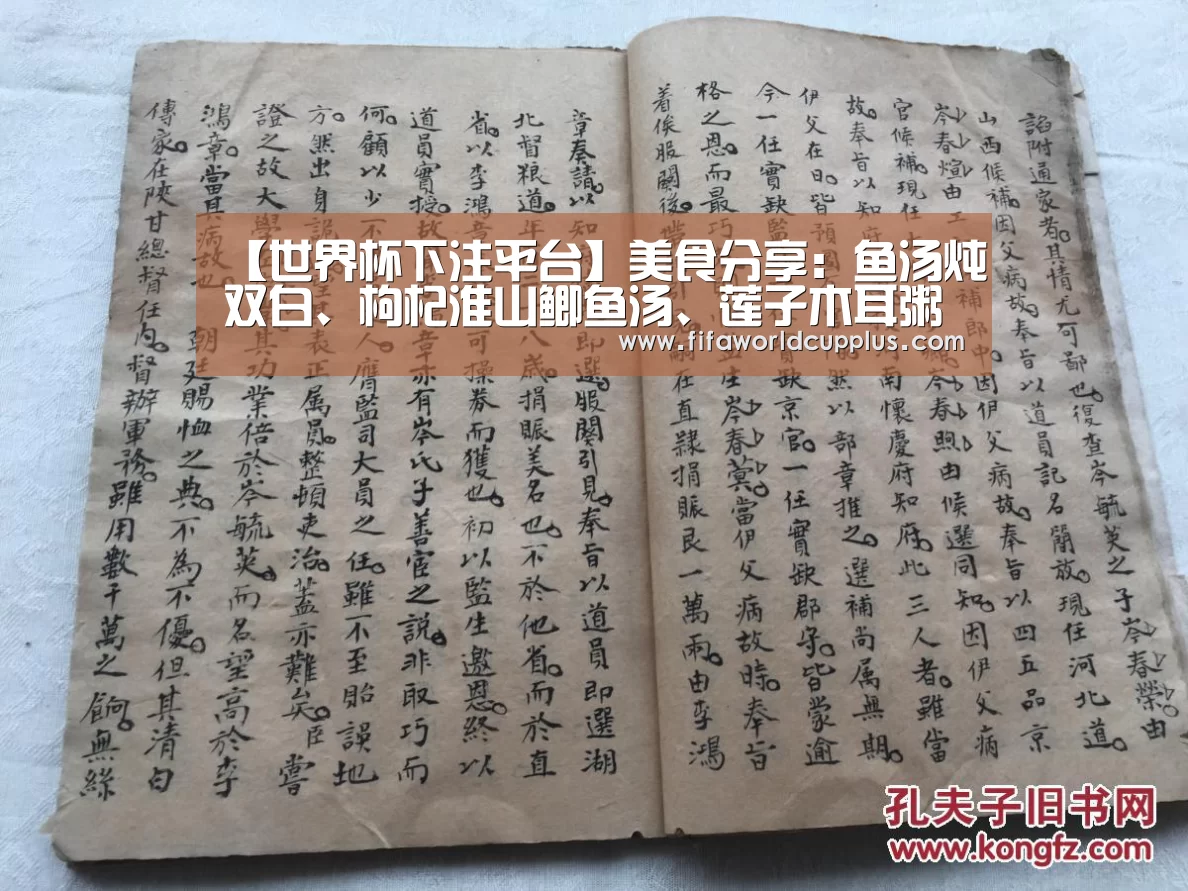 【世界杯下注平台】美食分享：鱼汤炖
双白、枸杞淮山鲫鱼汤、莲子木耳粥
www.fifaworldcupplus.com
諂附通家者其情尤可鄙也復查岑毓英之子岑春榮由
山西候補因父病故奉旨以道員記名簡放現任河北道
岑春煊由工補郎中因伊父病故奉旨以四五品京
官候補現任岑春煦由候選同知因伊父病
故奉旨以知府南懷慶府知府此三人者雖當
伊父在日皆預然以部章推之選補尚屬無期
今一任實缺監實缺京官一任實缺郡守皆蒙逾
格之恩而最巧生岑春蓂當伊父病故時奉旨
着俟服闋後在直隸捐賑艮一萬兩由李鴻
章奏請以知即選服闋引見奉旨以道員即選湖
北督粮道年八歲捐賑美名也不於他省而於直
省以李鴻章可操券而獲也初以監生邀恩終以
道員實授故章亦有岑氏子善宦之說非取巧而
何顧以少不人膺監司大員之任雖不至貽誤地
方然出身表正属員整頓吏治蓋亦難矣臣嘗
證之故大學其功業倍於岑毓英而名望高於李
鴻章當其病故也朝廷賜恤之典不為不優但其清白
傳家在陝甘總督任內督辦軍務雖用數千萬之餉無絲
孔夫子旧书网
www.kongfz.com